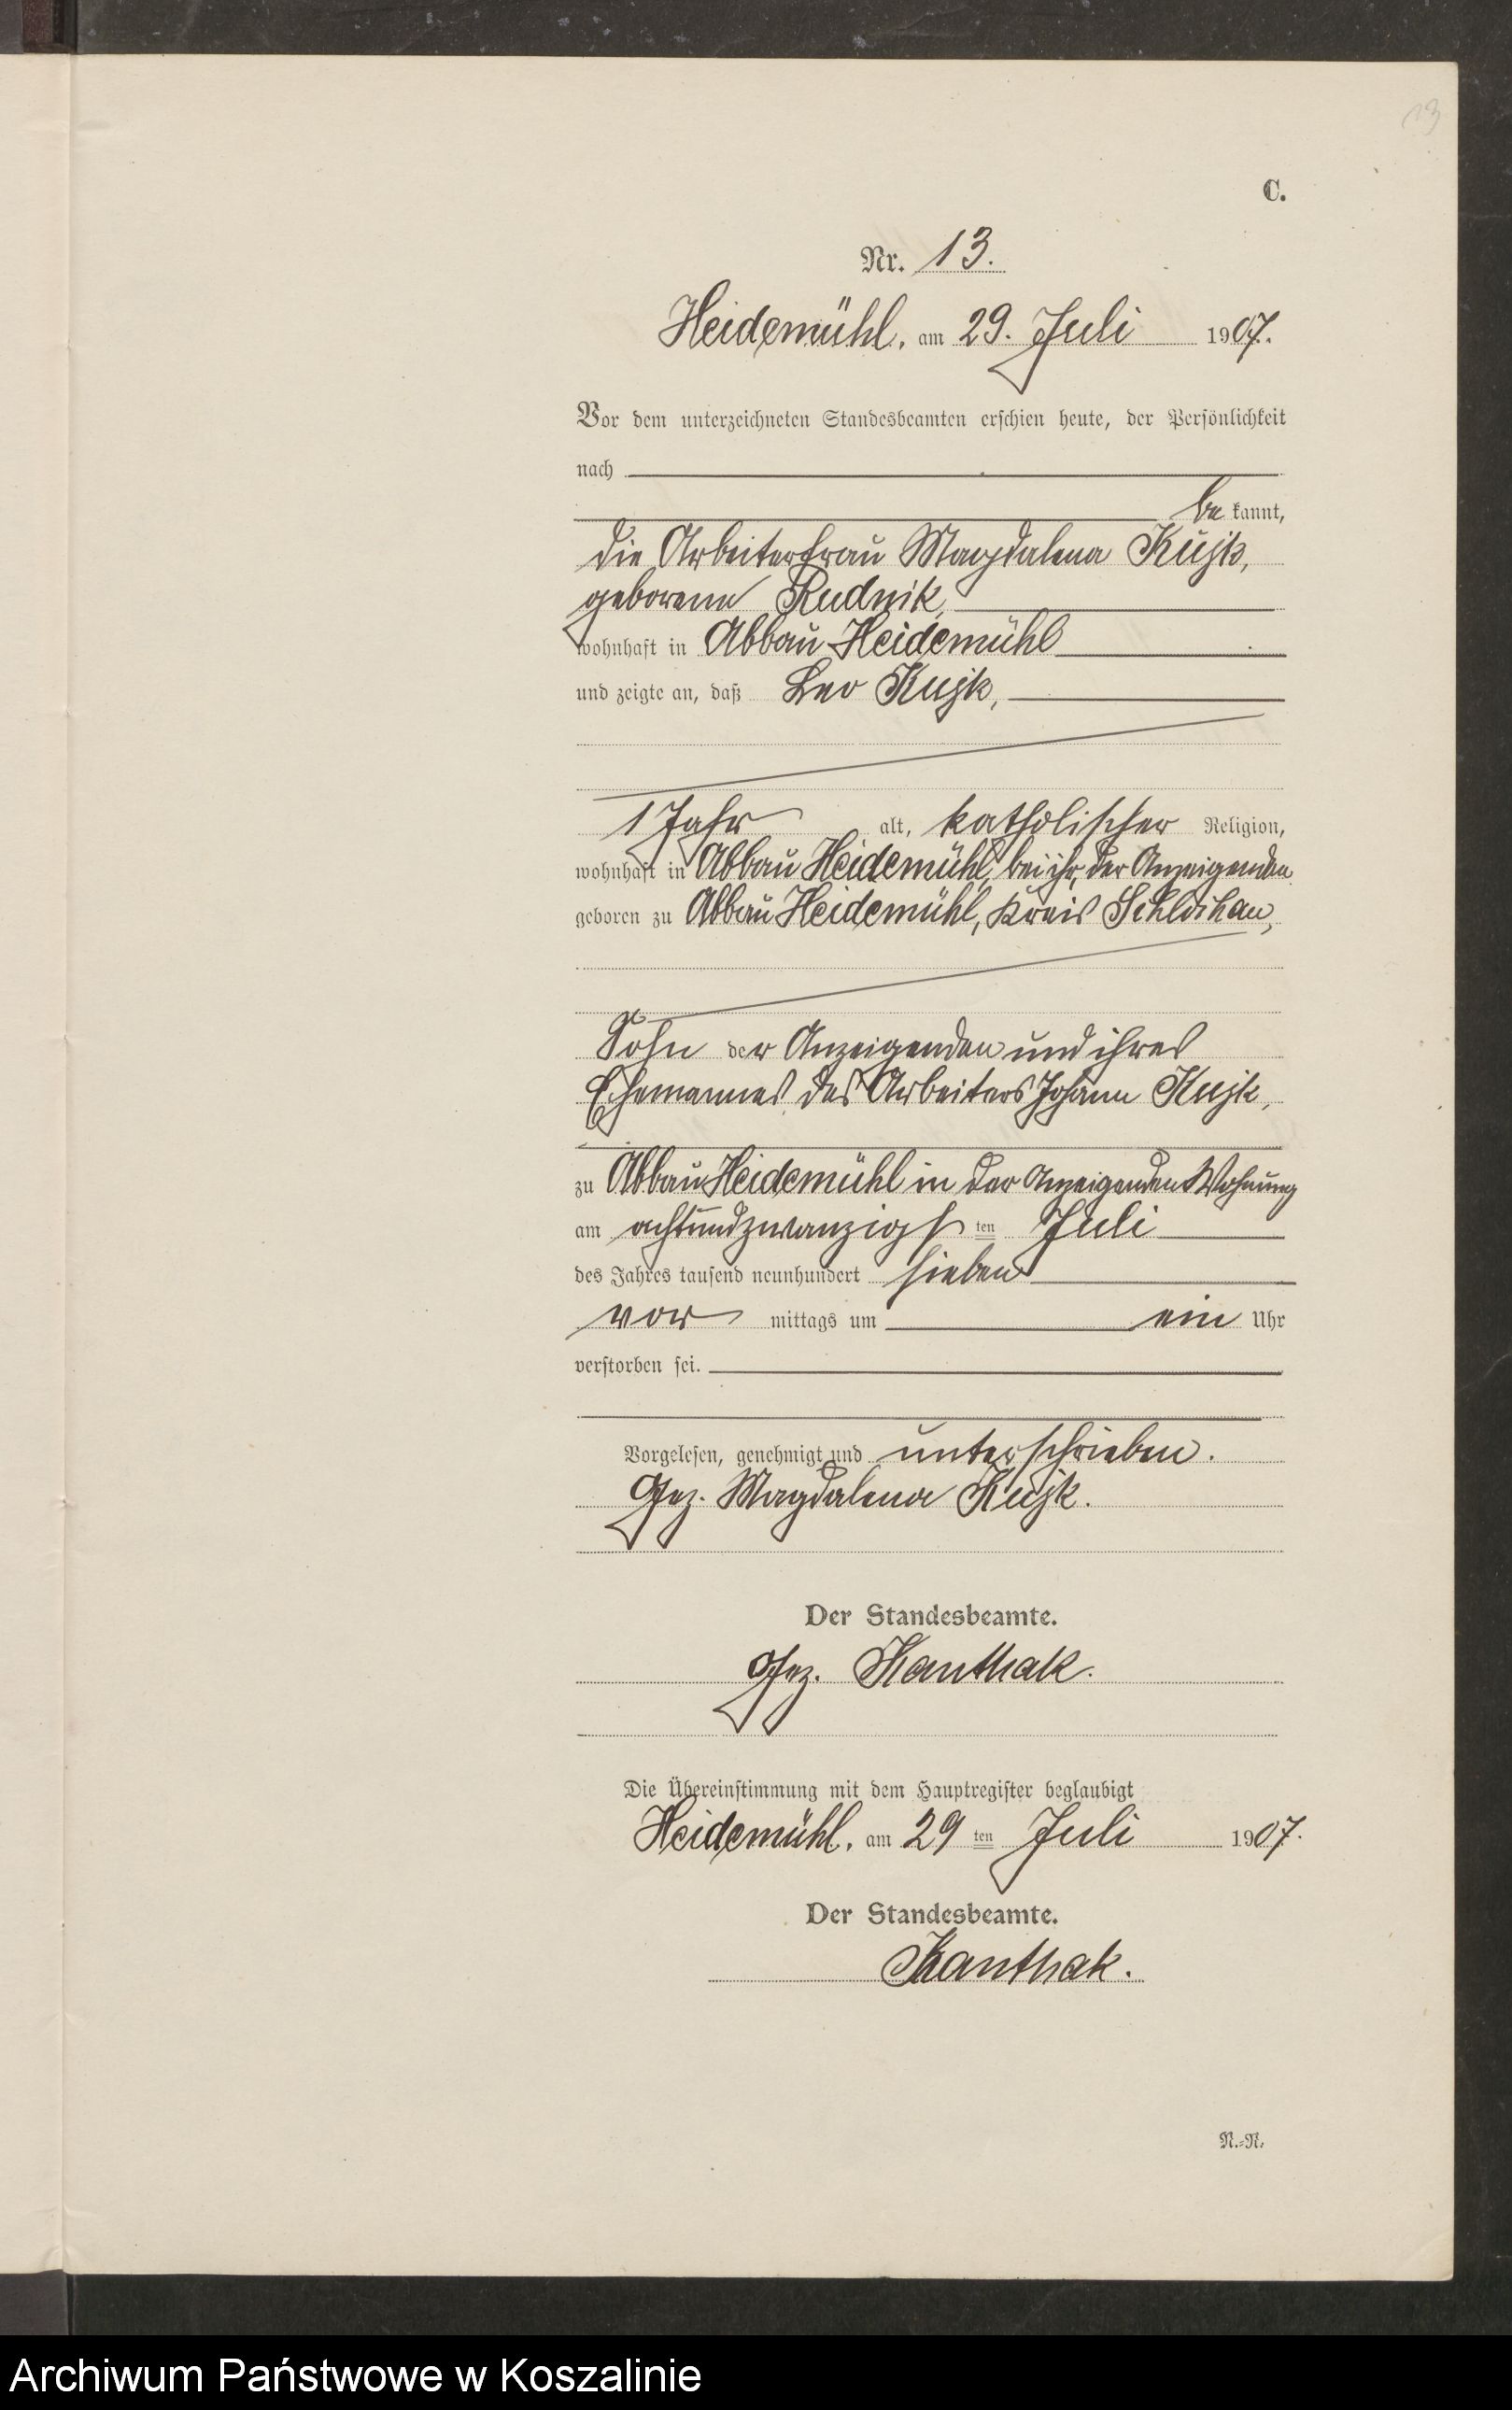 13
C.
Nr. 13.
Heidemühl, am 29. Juli 1907.
Vor dem unterzeichneten Standesbeamten erschien heute, der Persönlichkeit
nach
bekannt,
die Arbeiterfrau Magdalena Kujk,
geborene Rudnik,
wohnhaft in Abbau Heidemühl
und zeigte an, daß Leo Kujk,
1 Jahr alt, katholischer Religion,
wohnhaft in Abbau Heidemühl, bei ihr, der Anzeigenden
geboren zu Abbau Heidemühl, Kreis Schlochau,
Sohn der Anzeigenden und ihres
Ehemannes, des Arbeiters Johann Kujk,
zu Abbau Heidemühl in der Anzeigenden Wohnung
am achtundzwanzigsten Juli
des Jahres tausend neunhundert sieben
vormittags um ein Uhr
verstorben sei.
Vorgelesen, genehmigt und unterschrieben.
Gez. Magdalena Kujk.
Der Standesbeamte.
Gez. Kanthak.
Die Übereinstimmung mit dem Hauptregister beglaubigt
Heidemühl, am 29ten Juli 1907.
Der Standesbeamte.
Kanthak.
N.-R.
Archiwum Państwowe w Koszalinie